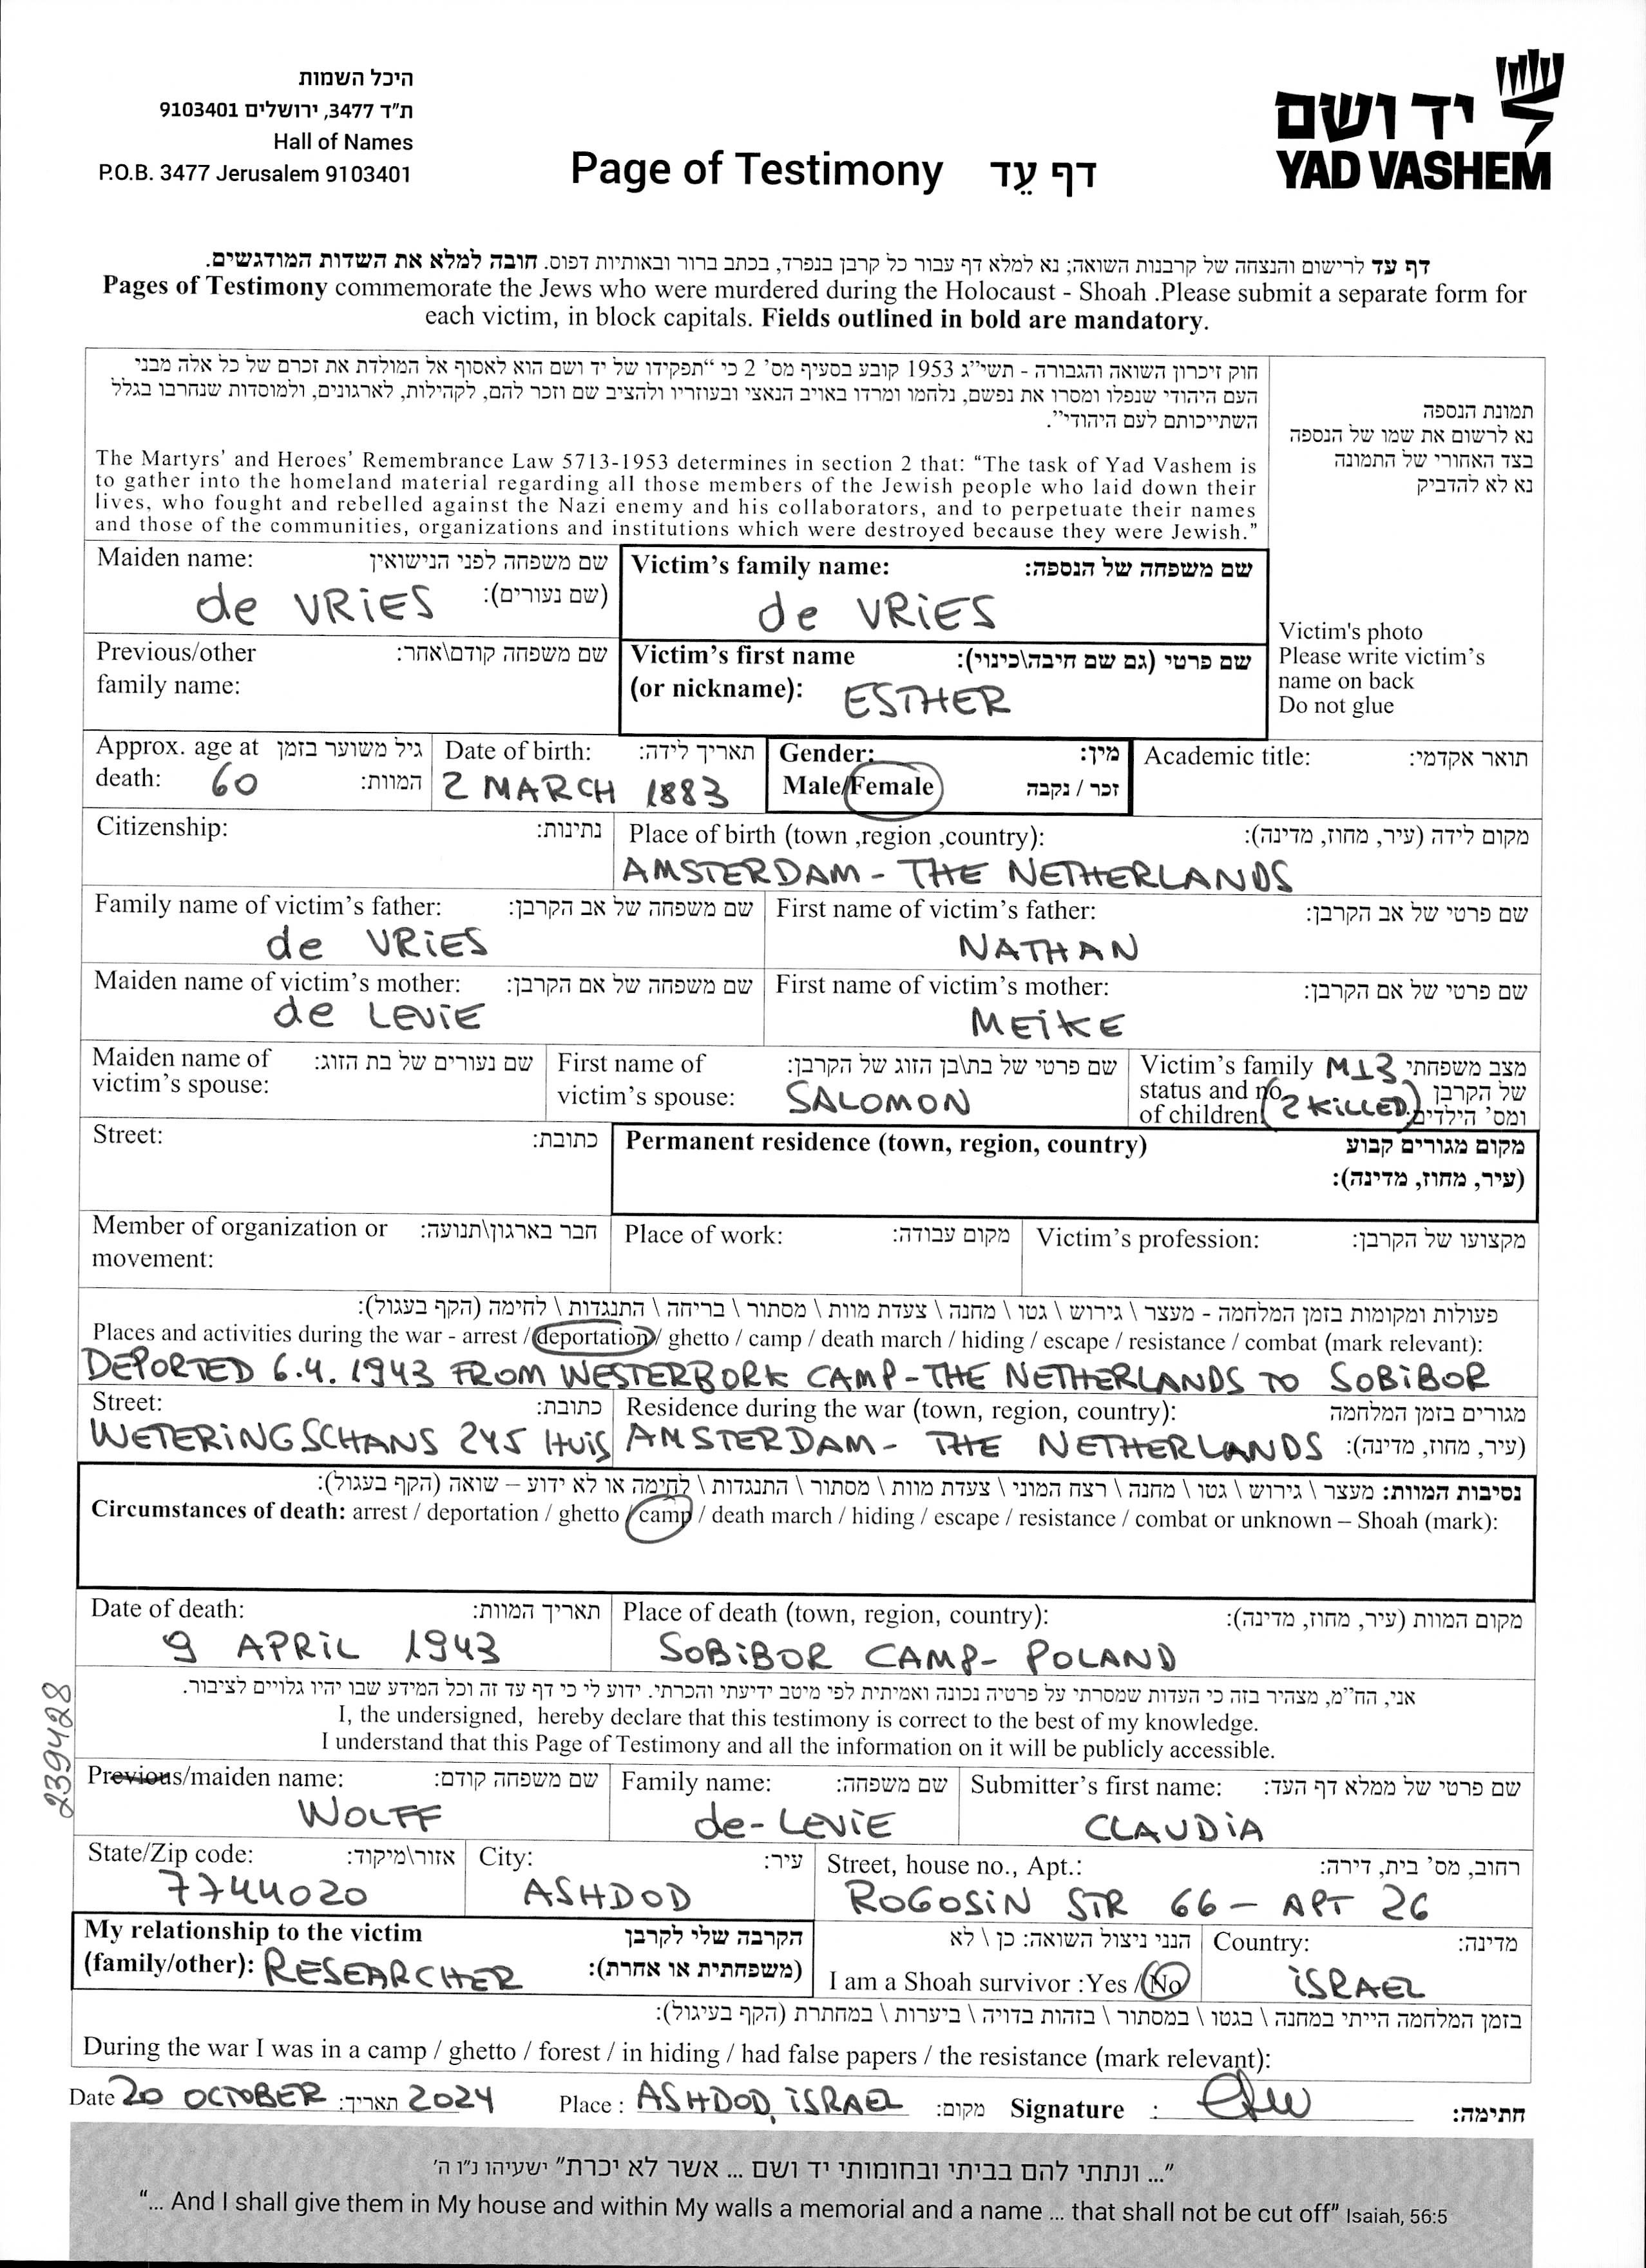 היכל השמות
ת"ד 3477, ירושלים 9103401
Hall of Names
P.O.B. 3477 Jerusalem 9103401
Page of Testimony דף עֵד
יד ושם
YAD VASHEM
דף עד לרישום והנצחה של קרבנות השואה; נא למלא דף עבור כל קרבן בנפרד, בכתב ברור ובאותיות דפוס. חובה למלא את השדות המודגשים.
Pages of Testimony commemorate the Jews who were murdered during the Holocaust - Shoah .Please submit a separate form for
each victim, in block capitals. Fields outlined in bold are mandatory.
חוק זיכרון השואה והגבורה - תשי"ג 1953 קובע בסעיף מס' 2 כי "תפקידו של יד ושם הוא לאסוף אל המולדת את זכרם של כל אלה מבני
העם היהודי שנפלו ומסרו את נפשם, נלחמו ומרדו באויב הנאצי ובעוזריו ולהציב שם וזכר להם, לקהילות, לארגונים, ולמוסדות שנחרבו בגלל
השתייכותם לעם היהודי".
The Martyrs' and Heroes' Remembrance Law 5713-1953 determines in section 2 that: "The task of Yad Vashem is
to gather into the homeland material regarding all those members of the Jewish people who laid down their
lives, who fought and rebelled against the Nazi enemy and his collaborators, and to perpetuate their names
and those of the communities, organizations and institutions which were destroyed because they were Jewish."
תמונת הנספה
נא לרשום את שמו של הנספה
בצד האחורי של התמונה
נא לא להדביק
Victim's photo
Please write victim's
name on back
Do not glue
Maiden name: שם משפחה לפני הנישואין
(שם נעורים):
de VRiES
Victim's family name: שם משפחה של הנספה:
de VRiES
Previous/other שם משפחה קודם\אחר:
family name:
Victim's first name שם פרטי (גם שם חיבה\כינוי):
(or nickname): ESTHER
Approx. age at גיל משוער בזמן
death: 60 המוות:
Date of birth: תאריך לידה:
2 MARCH 1883
Gender: מין:
Male/Female זכר / נקבה
Academic title: תואר אקדמי:
Citizenship: נתינות:
Place of birth (town ,region ,country): מקום לידה (עיר, מחוז, מדינה):
AMSTERDAM - THE NETHERLANDS
Family name of victim's father: שם משפחה של אב הקרבן:
de VRiES
First name of victim's father: שם פרטי של אב הקרבן:
NATHAN
Maiden name of victim's mother: שם משפחה של אם הקרבן:
de LEViE
First name of victim's mother: שם פרטי של אם הקרבן:
MEiKE
Maiden name of שם נעורים של בת הזוג:
victim's spouse:
First name of שם פרטי של בת\בן הזוג של הקרבן:
victim's spouse: SALOMON
Victim's family M+3 מצב משפחתי
status and no. של הקרבן
of children: (2 KiLLED) ומס' הילדים:
Street: כתובת:
Permanent residence (town, region, country) מקום מגורים קבוע
(עיר, מחוז, מדינה):
Member of organization or חבר בארגון\תנועה:
movement:
Place of work: מקום עבודה:
Victim's profession: מקצועו של הקרבן:
פעולות ומקומות בזמן המלחמה - מעצר \ גירוש \ גטו \ מחנה \ צעדת מוות \ מסתור \ בריחה \ התנגדות \ לחימה (הקף בעגול):
Places and activities during the war - arrest / deportation / ghetto / camp / death march / hiding / escape / resistance / combat (mark relevant):
DEPORTED 6.4. 1943 FROM WESTERBORK CAMP - THE NETHERLANDS TO SOBiBOR
Street: כתובת:
WETERiNGSCHANS 245 HUiS
Residence during the war (town, region, country): מגורים בזמן המלחמה
AMSTERDAM - THE NETHERLANDS (עיר, מחוז, מדינה):
נסיבות המוות: מעצר \ גירוש \ גטו \ מחנה \ רצח המוני \ צעדת מוות \ מסתור \ התנגדות \ לחימה או לא ידוע – שואה (הקף בעגול):
Circumstances of death: arrest / deportation / ghetto / camp / death march / hiding / escape / resistance / combat or unknown – Shoah (mark):
Date of death: תאריך המוות:
9 APRiL 1943
Place of death (town, region, country): מקום המוות (עיר, מחוז, מדינה):
SOBiBOR CAMP - POLAND
אני, הח"מ, מצהיר בזה כי העדות שמסרתי על פרטיה נכונה ואמיתית לפי מיטב ידיעתי והכרתי. ידוע לי כי דף עד זה וכל המידע שבו יהיו גלויים לציבור.
I, the undersigned, hereby declare that this testimony is correct to the best of my knowledge.
I understand that this Page of Testimony and all the information on it will be publicly accessible.
239428
Previous/maiden name: שם משפחה קודם:
WOLFF
Family name: שם משפחה:
de-LEViE
Submitter's first name: שם פרטי של ממלא דף העד:
CLAUDiA
State/Zip code: אזור\מיקוד:
7744020
City: עיר:
ASHDOD
Street, house no., Apt.: רחוב, מס' בית, דירה:
ROGOSiN STR 66 - APT 26
My relationship to the victim הקרבה שלי לקרבן
(family/other): RESEARCHER (משפחתית או אחרת):
הנני ניצול השואה: כן \ לא
I am a Shoah survivor :Yes / No
Country: מדינה:
iSRAEL
בזמן המלחמה הייתי במחנה \ בגטו \ במסתור \ בזהות בדויה \ ביערות \ במחתרת (הקף בעיגול):
During the war I was in a camp / ghetto / forest / in hiding / had false papers / the resistance (mark relevant):
Date 20 OCTOBER תאריך: 2024 Place : ASHDOD, iSRAEL מקום: Signature : חתימה:
"... ונתתי להם בביתי ובחומותי יד ושם ... אשר לא יכרת" ישעיהו נ"ו ה'
"... And I shall give them in My house and within My walls a memorial and a name ... that shall not be cut off" Isaiah, 56:5